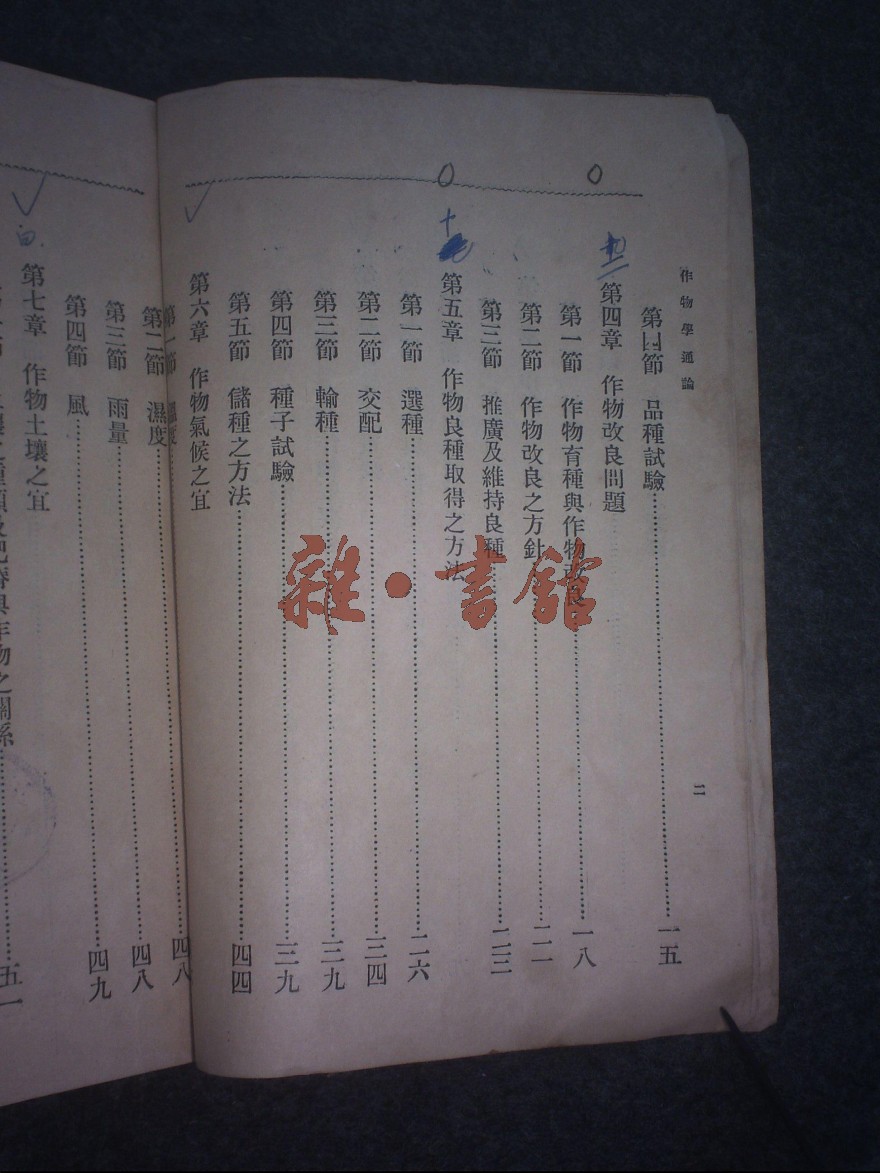 作物學通論
二
第四節 品種試驗……一五
第四章 作物改良問題
第一節 作物育種與作物改良……一八
第二節 作物改良之方針……二一
第三節 推廣及維持良種……二三
十
第五章 作物良種取得之方法
第一節 選種……二六
第二節 交配……三四
第三節 輸種……三九
第四節 種子試驗……三九
第五節 儲種之方法……四四
第六章 作物氣候之宜
第一節 溫度……四八
第二節 濕度……四八
第三節 雨量……四八
第四節 風……四九
第七章 作物土壤之宜
與作物之關係……五一
雜·書館